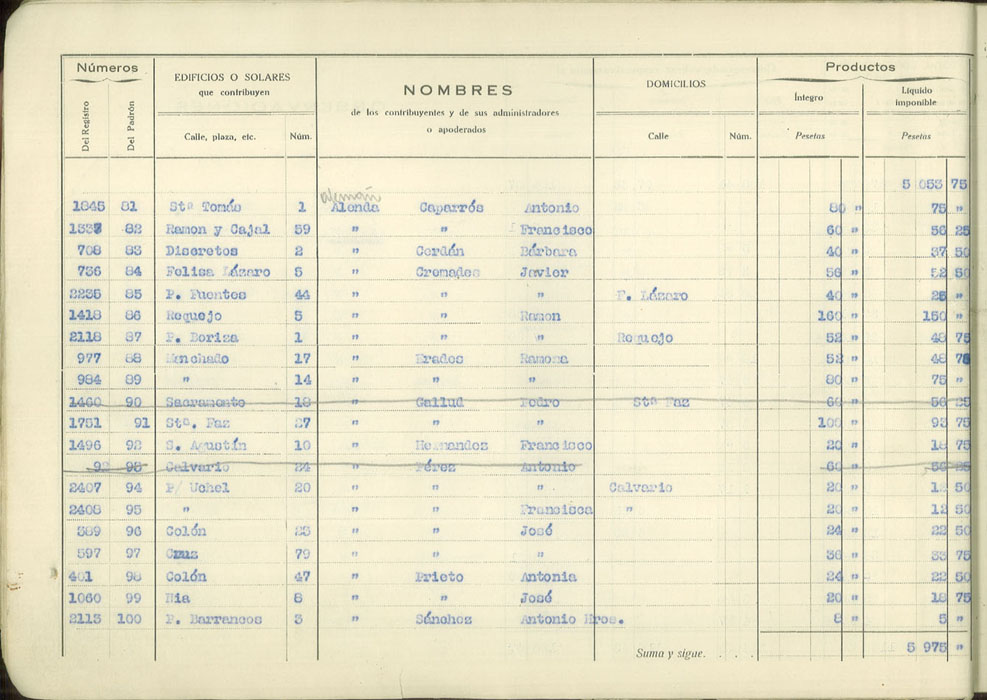 Números EDIFICIOS O SOLARES que contribuyen NOMBRES de los contribuyentes y de sus administradores o apoderados DOMICILIOS Productos
Del Registro Del Padrón Calle, plaza, etc. Núm. Calle Núm. Íntegro Pesetas Líquido imponible Pesetas
5 053 75
Alemañ
1845 81 Stª Tomás 1 Alenda Caparrós Antonio 80 " 75 "
1337 82 Ramon y Cajal 59 " " Francisco 60 " 56 25
708 83 Discretos 2 " Cerdán Bárbara 40 " 37 50
736 84 Felisa Lázaro 5 " Cremades Javier 56 " 52 50
2235 85 P. Fuentes 44 " " " F. Lázaro 40 " 25 "
1418 86 Requejo 5 " " Ramon 160 " 150 "
2118 87 P. Boriza 1 " " " Requejo 52 " 48 75
977 88 Menchado 17 " Erades Ramona 52 " 48 75
984 89 " 14 " " " 80 " 75 "
1460 90 Sacramento 18 " Gallud Pedro Stª Faz 60 " 56 25
1751 91 Stª. Faz 27 " " " 100 " 93 75
1496 92 S. Agustín 10 " Hernandez Francisco 20 " 18 75
92 93 Calvario 34 " Pérez Antonio 60 " 56 25
2407 94 P/ Uchel 20 " " " Calvario 20 " 12 50
2408 95 " " " Francisca " 20 " 12 50
589 96 Colón " " José 24 " 22 50
597 97 Cruz 79 " " " 36 " 33 75
401 98 Colón 47 " Prieto Antonia 24 " 22 50
1060 99 Mia 8 " " José 20 " 18 75
2113 100 P. Barrancos 3 " Sánchez Antonio Hros. 8 " 5 "
Suma y sigue. . . . 5 975 "